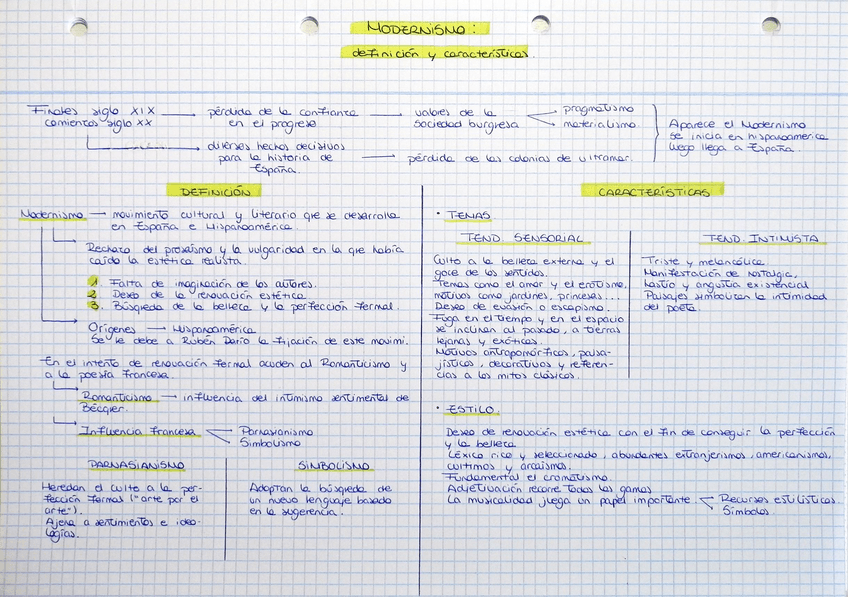 MODERNISMO:
definición y características.
Finales siglo XIX → pérdida de la confianza → valores de la → pragmatismo
comienzos siglo XX en el progreso sociedad burguesa → materialismo
Aparece el Modernismo
se inicia en hispanoamérica
luego llega a España.
→ diversos hechos decisivos
para la historia de → pérdida de las colonias de ultramar.
España.
DEFINICIÓN
Modernismo → movimiento cultural y literario que se desarrolla
en España e Hispanoamérica.
Rechazo del prosaísmo y la vulgaridad en la que había
caído la estética realista.
1. Falta de imaginación de los autores.
2. Deseo de la renovación estética
3. Búsqueda de la belleza y la perfección formal.
Orígenes → Hispanoamérica
Se le debe a Rubén Darío la fijación de este movimi.
En el intento de renovación formal acuden al Romanticismo y
a la poesía francesa.
Romanticismo → influencia del intimismo sentimental de
Bécquer.
Influencia francesa Parnasianismo
Simbolismo
PARNASIANISMO
Heredan el culto a la per-
fección formal ("arte por el
arte").
Ajena a sentimientos e ideo-
logías.
SIMBOLISMO
Adoptan la búsqueda de
un nuevo lenguaje basado
en la sugerencia.
CARACTERÍSTICAS
· TEMAS
TEND. SENSORIAL
Culto a la belleza externa y el
goce de los sentidos.
Temas como el amor y el erotismo,
motivos como jardines, princesas...
Deseo de evasión o escapismo.
Fuga en el tiempo y en el espacio
se inclinan al pasado, a tierras
lejanas y exóticas.
Motivos antropomórficos, paisa-
jísticos, decorativos y referen-
cias a los mitos clásicos.
TEND. INTIMISTA
Triste y melancólica
Manifestación de nostalgia,
hastío y angustia existencial
Paisajes simbolizan la intimidad
del poeta.
· ESTILO.
Deseo de renovación estética con el fin de conseguir la perfección
y la belleza
Léxico rico y seleccionado, abundantes extranjerismos, americanismos,
cultimos y arcaísmo.
Fundamental el cromatismo.
Adjetivación recorre todas las gamas
La musicalidad juega un papel importante. Recursos estilísticos.
Símbolos.